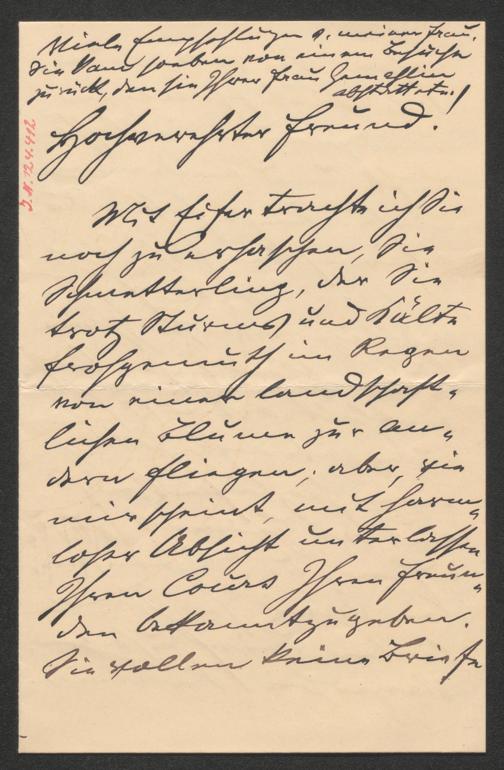 Viele Empfehlungen v. meiner Frau,
die kam soeben von einem Besuche
zurück, den sie Ihrer Frau Gemahlin
abstattete!
J.N. 124.412
Hochverehrter Freund.
Mit Eifer trachte ich Sie
noch zu erhaschen, Sie
Schmetterling, der Sie
trotz Sturms und Kälte
frohgemuth im Regen
von einer landschaft-
lichen Blume zur an-
dern fliegen; aber, wie
mir scheint, mit harm-
loser Absicht unterlassen
Ihren Cours Ihren Freun-
den bekanntzugeben.
Sie wollen keine Briefe